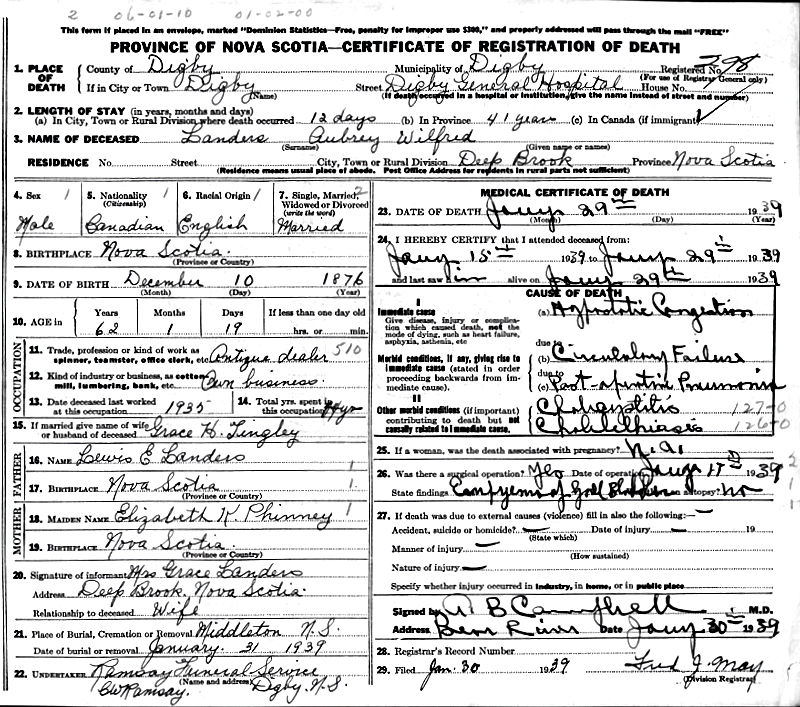 2 06-01-10 01-02-00
This form if placed in an envelope, marked "Dominion Statistics—Free, penalty for improper use $300," and properly addressed will pass through the mail "FREE"
PROVINCE OF NOVA SCOTIA—CERTIFICATE OF REGISTRATION OF DEATH
1. PLACE OF DEATH
County of Digby Municipality of Digby Registered No. 398
(For use of Registrar General only)
If in City or Town Digby Street Digby General Hospital House No.
(Name) (If death occurred in a hospital or institution, give the name instead of street and number)
2. LENGTH OF STAY (in years, months and days)
(a) In City, Town or Rural Division where death occurred 12 days (b) In Province 41 years (c) In Canada (if immigrant)
3. NAME OF DECEASED Landers Aubrey Wilfred
(Surname) (Given name or names)
RESIDENCE No. Street City, Town or Rural Division Deep Brook Province Nova Scotia
(Residence means usual place of abode. Post Office Address for residents in rural parts not sufficient)
4. Sex 1 5. Nationality 1 (Citizenship) 6. Racial Origin 1 7. Single, Married, 2 Widowed or Divorced (write the word)
Male Canadian English Married
8. BIRTHPLACE Nova Scotia.
(Province or Country)
9. DATE OF BIRTH December 10 1876
(Month) (Day) (Year)
10. AGE in Years Months Days If less than one day old
62 1 19 hrs. or min.
OCCUPATION
11. Trade, profession or kind of work as spinner, teamster, office clerk, etc. Antique dealer 510
12. Kind of industry or business, as cotton mill, lumbering, bank, etc. Own business.
13. Date deceased last worked at this occupation 1935 14. Total yrs. spent in this occupation yr
15. If married give name of wife or husband of deceased Grace H. Tingley
FATHER
16. NAME Lewis E Landers 1
17. BIRTHPLACE Nova Scotia 1
(Province or Country)
MOTHER
18. MAIDEN NAME Elizabeth K Phinney 1
19. BIRTHPLACE Nova Scotia
(Province or Country)
20. Signature of informant Mrs Grace Landers
Address Deep Brook, Nova Scotia.
Relationship to deceased Wife
21. Place of Burial, Cremation or Removal Middleton N.S.
Date of burial or removal January. 31 1939
22. UNDERTAKER Ramsay Funeral Service
(Name and address)
CW Ramsay. Digby. N.S.
MEDICAL CERTIFICATE OF DEATH
23. DATE OF DEATH Jany 29th 1939
(Month) (Day) (Year)
24. I HEREBY CERTIFY that I attended deceased from:
Jany 15th 1939 to Jany 29th 1939
and last saw him alive on Jany 29th 1939
CAUSE OF DEATH
I
Immediate cause (a) Hypostatic Congestion
Give disease, injury or complication which caused death, not the mode of dying, such as heart failure, asphyxia, asthenia, etc
due to
Morbid conditions, if any, giving rise to immediate cause (stated in order proceeding backwards from immediate cause)
(b) Circulatory Failure
due to
(c) Post-operative Pneumonia
II
Other morbid conditions (if important) contributing to death but not causally related to immediate cause.
Cholecystitis 127-0
Cholelithiasis 126-0
25. If a woman, was the death associated with pregnancy? N.A.
26. Was there a surgical operation? Yes Date of operation Jany 17th 1939
State findings Empyema of Gall Bladder an autopsy? no
27. If death was due to external causes (violence) fill in also the following:—
Accident, suicide or homicide? — Date of injury — 19
(State which)
Manner of injury —
(How sustained)
Nature of injury —
Specify whether injury occurred in industry, in home, or in public place
Signed by B Campbell M.D.
Address Bear River Date Jany 30th 1939
28. Registrar's Record Number
29. Filed Jan. 30 1939 Fred J. May
(Division Registrar)